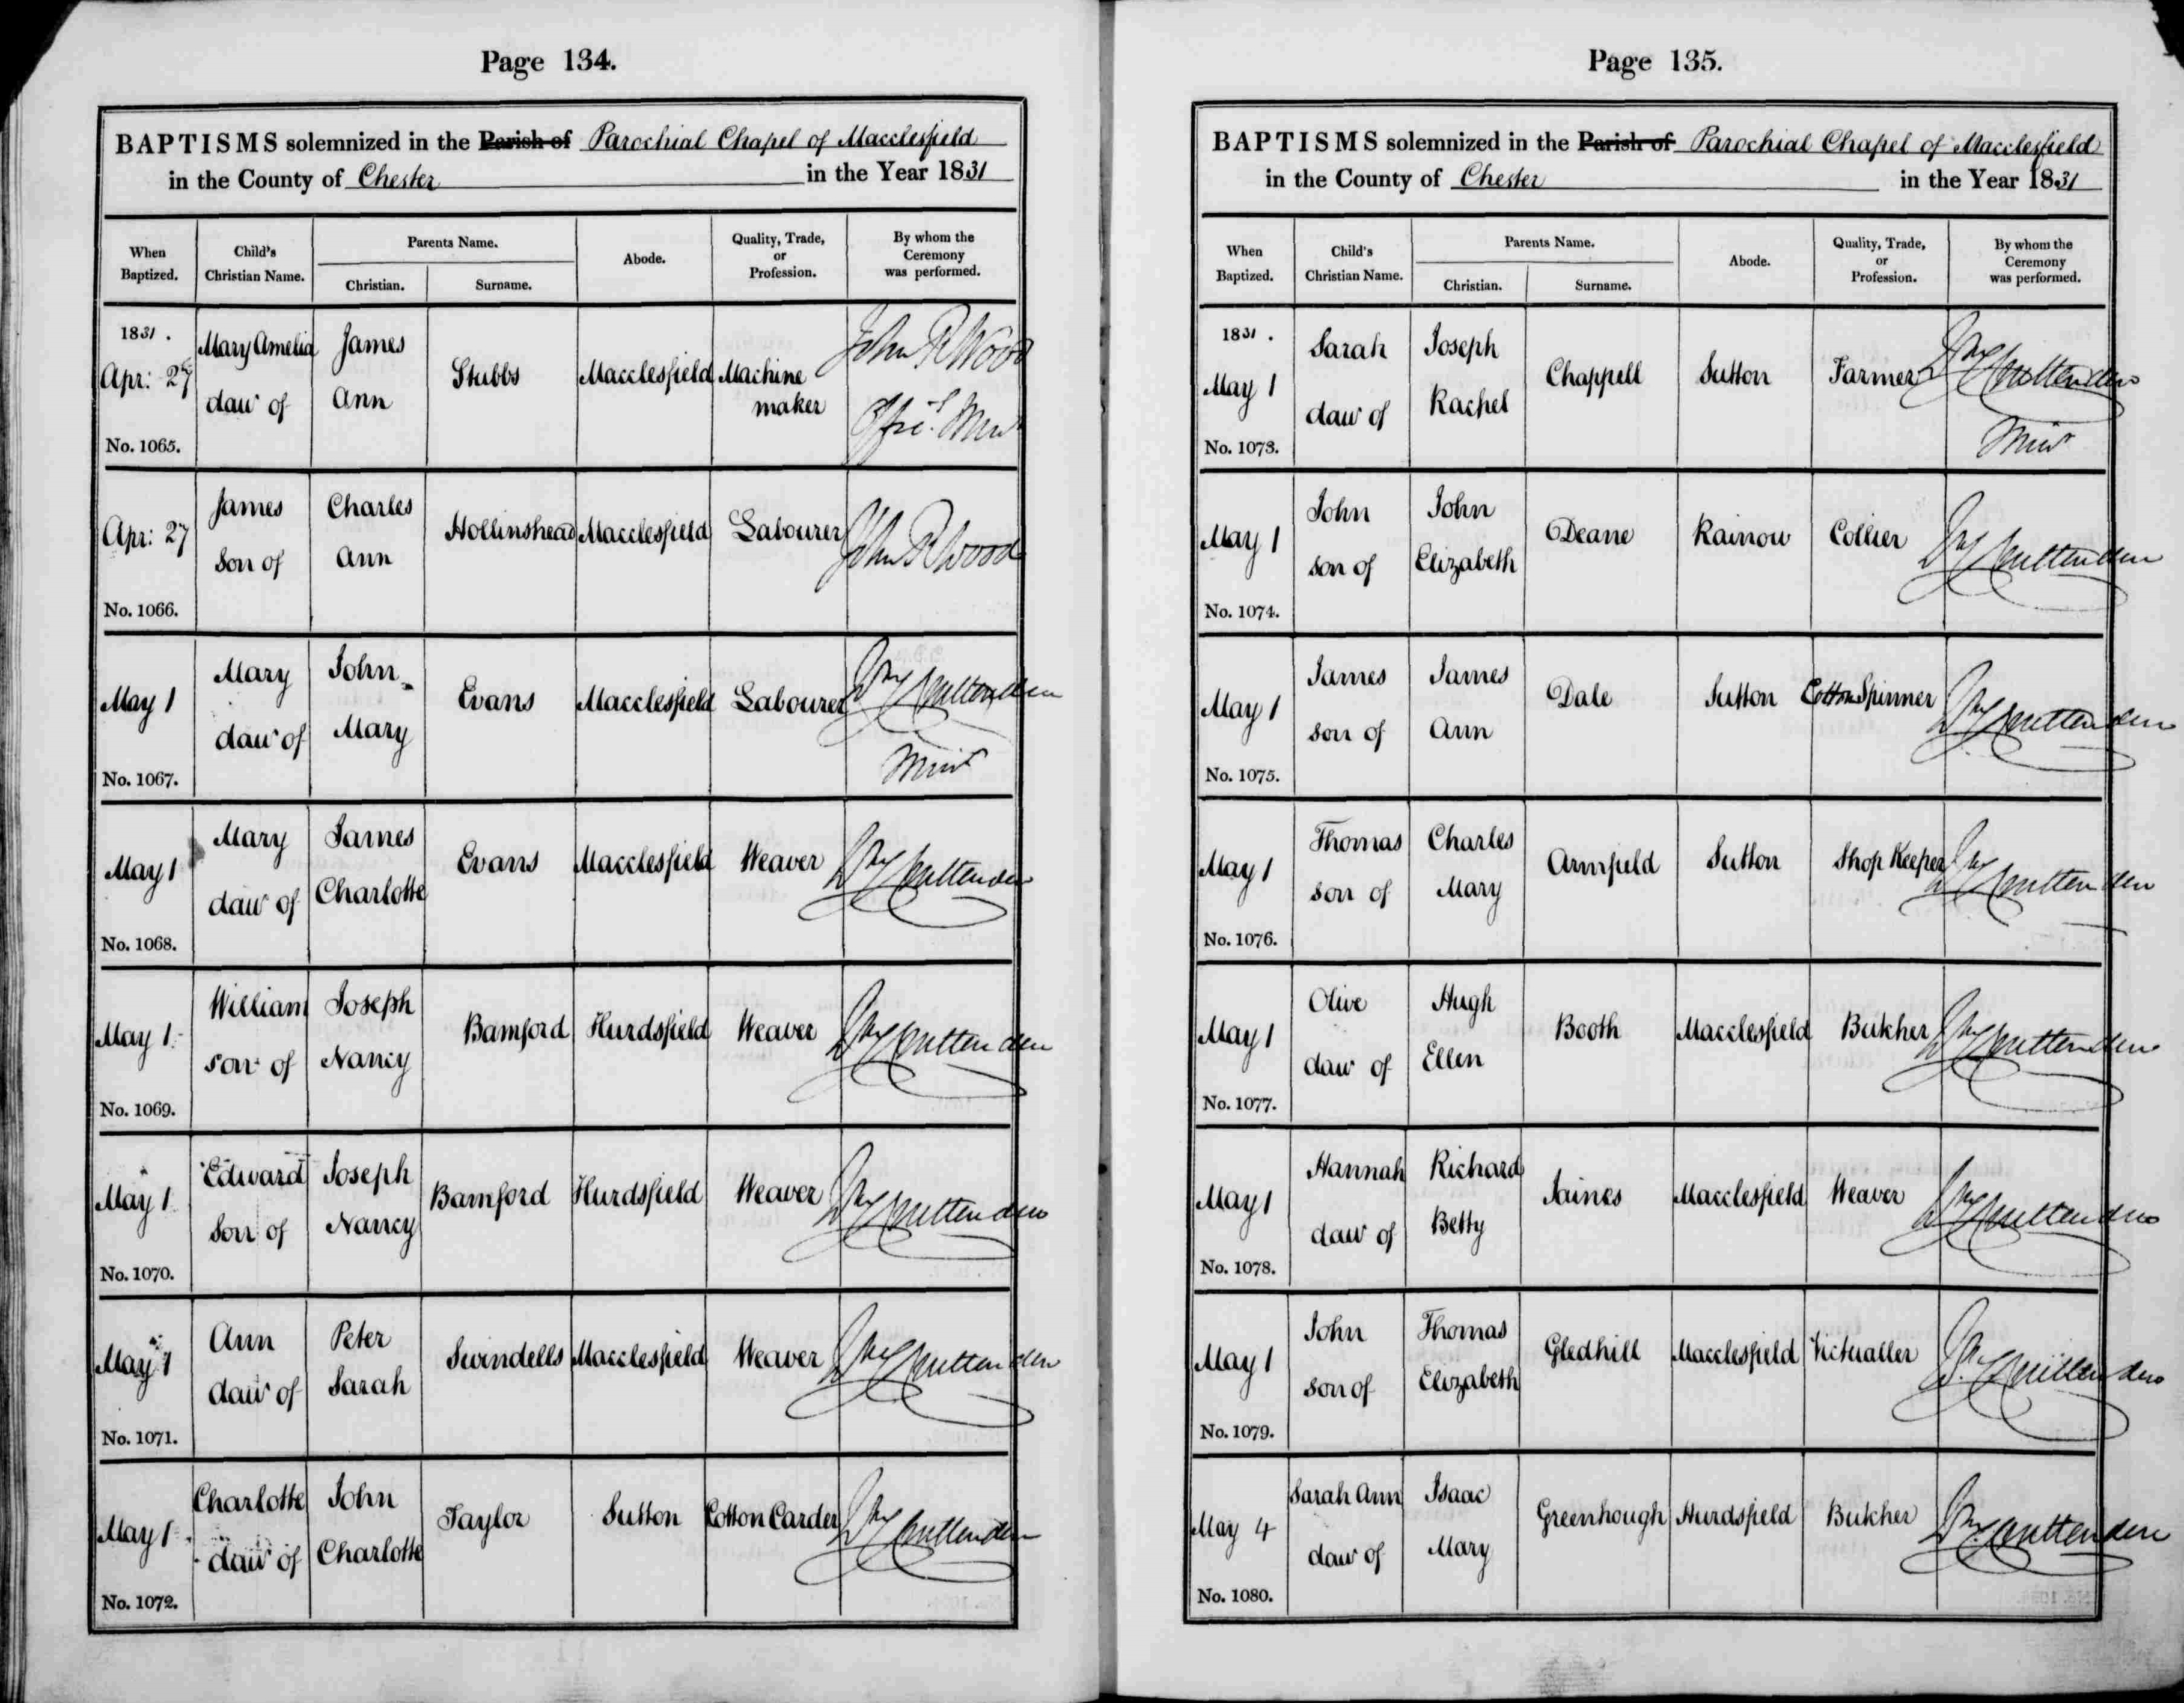 Page 134.
BAPTISMS solemnized in the Parish of Parochial Chapel of Macclesfield
in the County of Chester in the Year 1831
When Baptized. Child's Christian Name. Parents Name. Christian. Surname. Abode. Quality, Trade, or Profession. By whom the Ceremony was performed.
1831. Mary Amelia James John R Wood
Apr: 27 Stubbs Macclesfield Machine
daur of Ann maker Offic.g Minr
No. 1065.
James Charles
Apr: 27 Hollinshead Macclesfield Labourer John R Wood
son of Ann
No. 1066.
Mary John
May 1 Evans Macclesfield Labourer Wm Cruttenden
daur of Mary Minr
No. 1067.
Mary James
May 1 Evans Macclesfield Weaver Wm Cruttenden
daur of Charlotte
No. 1068.
William Joseph
May 1 Bamford Hurdsfield Weaver Wm Cruttenden
son of Nancy
No. 1069.
Edward Joseph
May 1 Bamford Hurdsfield Weaver Wm Cruttenden
son of Nancy
No. 1070.
Ann Peter
May 1 Swindells Macclesfield Weaver Wm Cruttenden
daur of Sarah
No. 1071.
Charlotte John
May 1 Taylor Sutton Cotton Carder Wm Cruttenden
daur of Charlotte
No. 1072.
Page 135.
BAPTISMS solemnized in the Parish of Parochial Chapel of Macclesfield
in the County of Chester in the Year 1831
When Baptized. Child's Christian Name. Parents Name. Christian. Surname. Abode. Quality, Trade, or Profession. By whom the Ceremony was performed.
1831. Sarah Joseph
May 1 Chappell Sutton Farmer Wm Cruttenden
daur of Rachel Minr
No. 1073.
John John
May 1 Deane Rainow Collier Wm Cruttenden
son of Elizabeth
No. 1074.
James James
May 1 Dale Sutton Cotton Spinner Wm Cruttenden
son of Ann
No. 1075.
Thomas Charles
May 1 Armfield Sutton Shop Keeper Wm Cruttenden
son of Mary
No. 1076.
Olive Hugh
May 1 Booth Macclesfield Butcher Wm Cruttenden
daur of Ellen
No. 1077.
Hannah Richard
May 1 Jaines Macclesfield Weaver Wm Cruttenden
daur of Betty
No. 1078.
John Thomas
May 1 Gledhill Macclesfield Victualler Wm Cruttenden
son of Elizabeth
No. 1079.
Sarah Ann Isaac
May 4 Greenhough Hurdsfield Butcher Wm Cruttenden
daur of Mary
No. 1080.